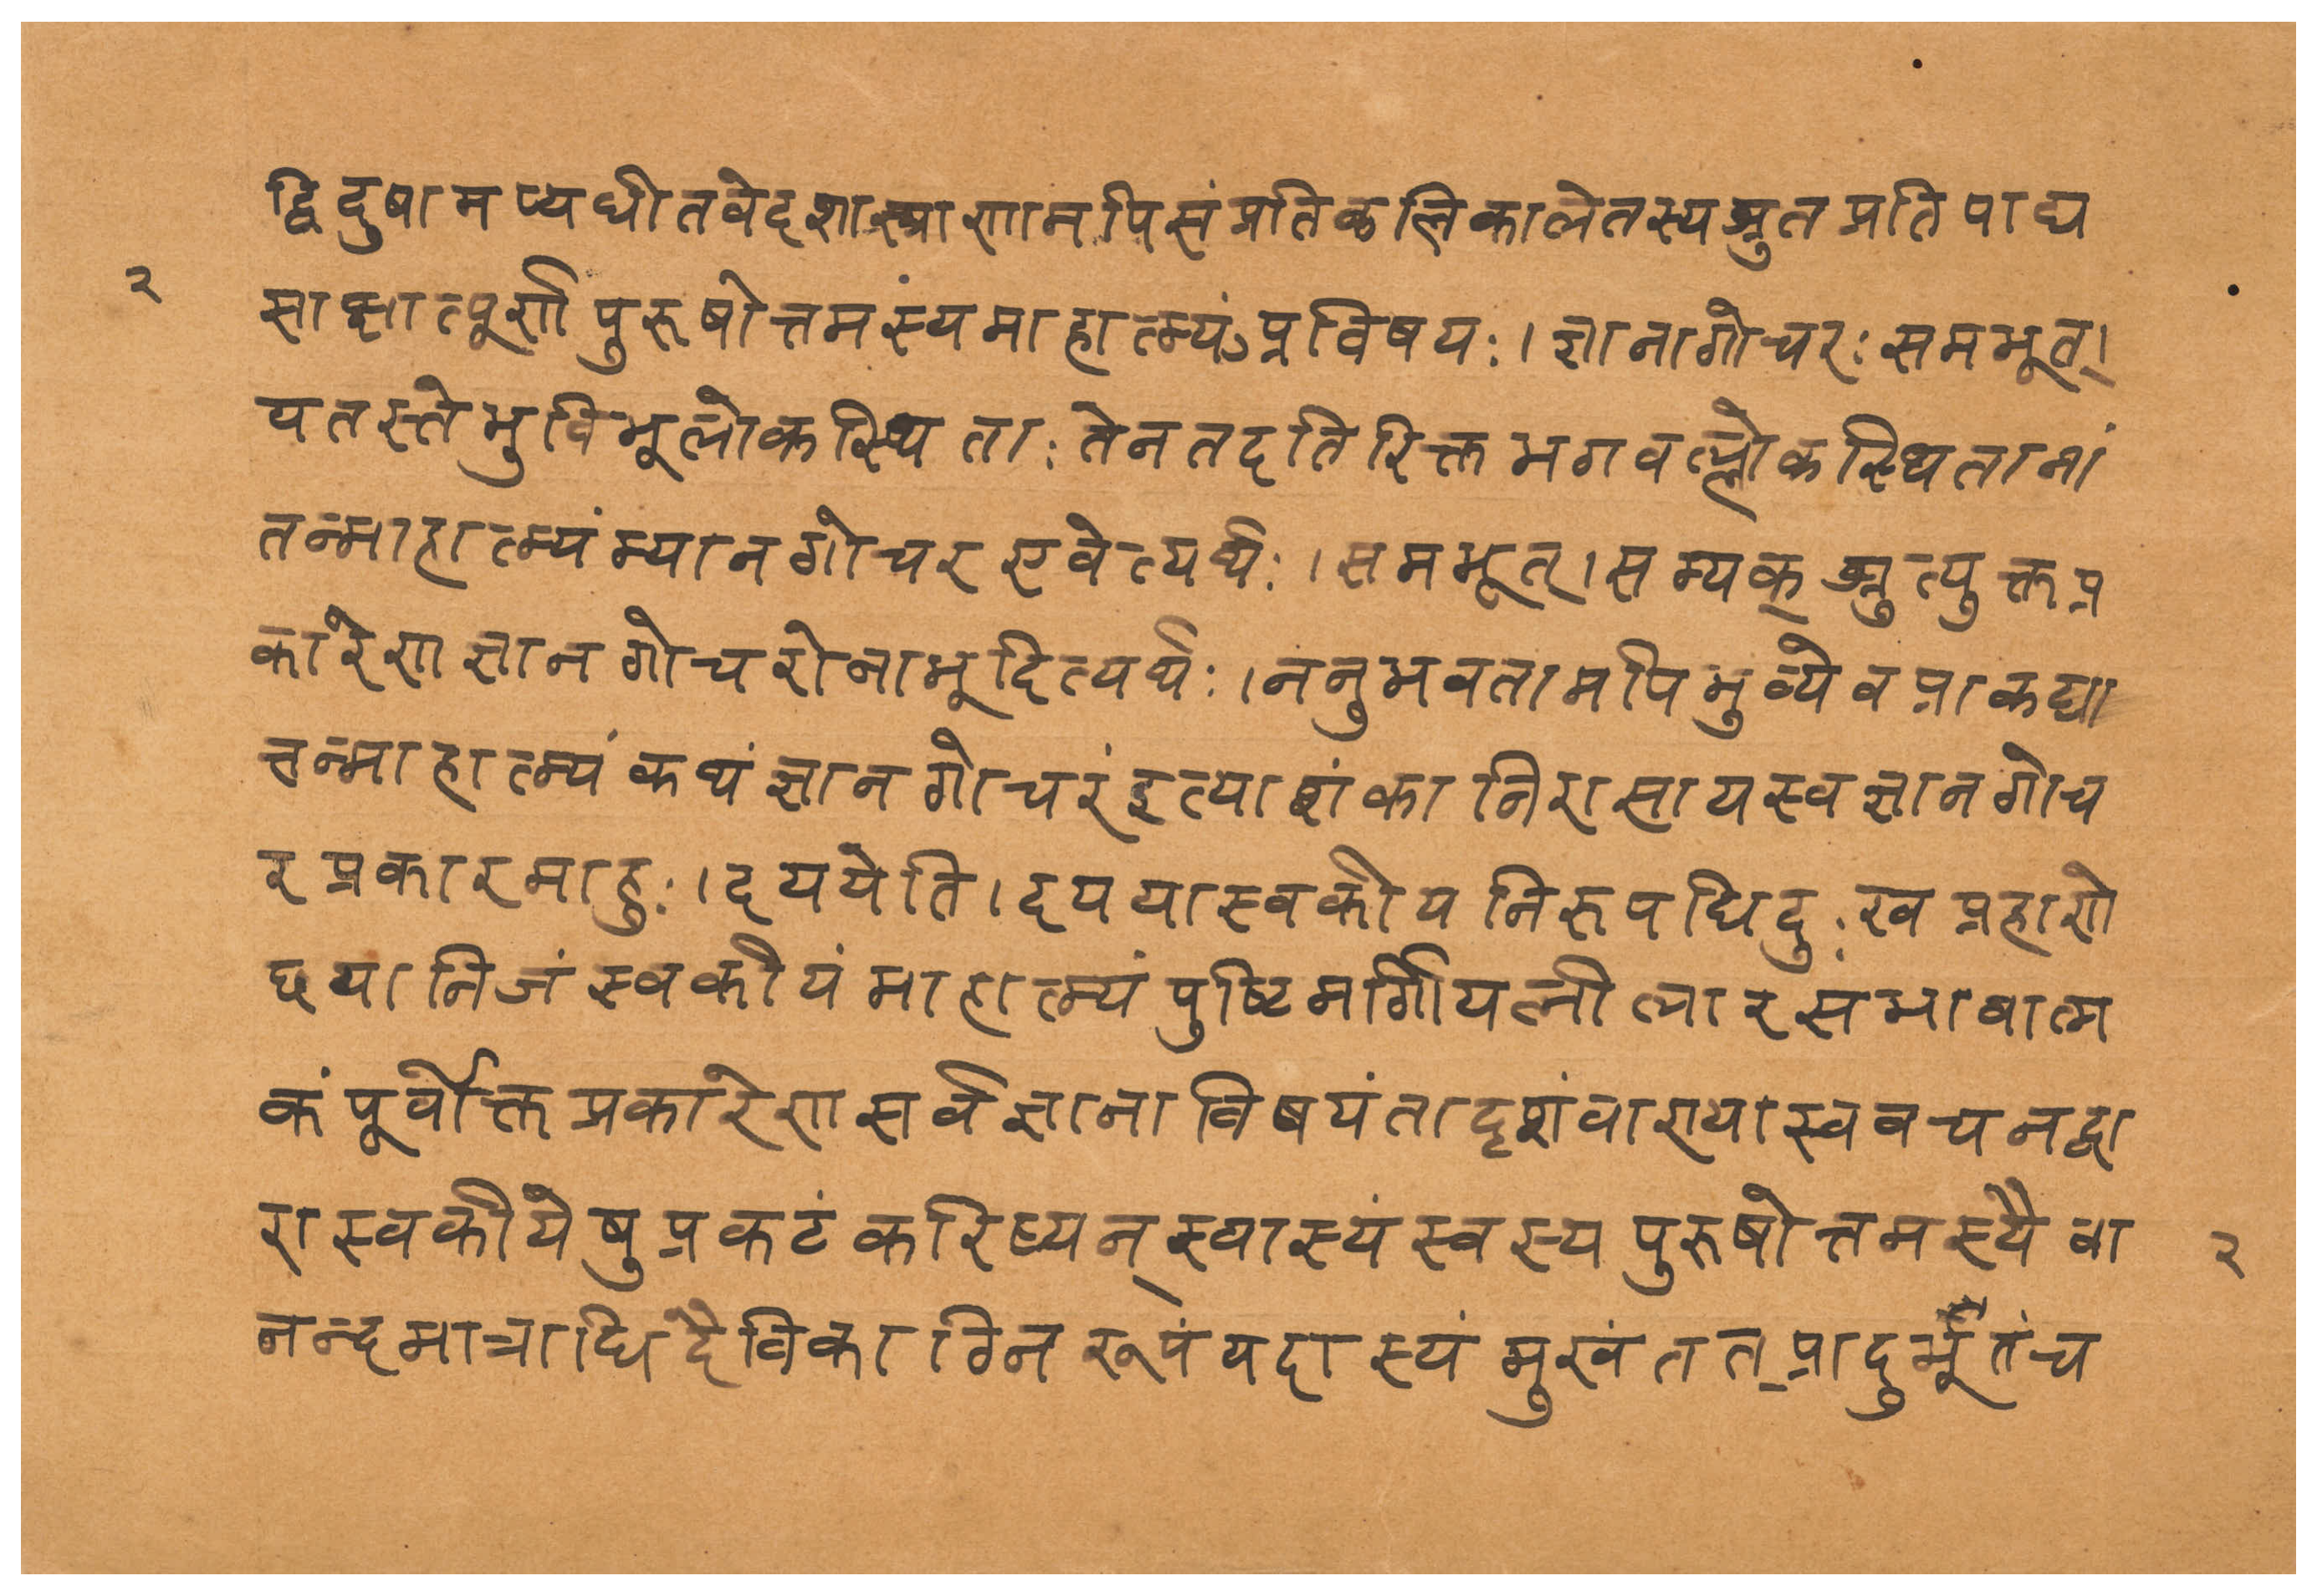 द्विदुषामप्यधीतवेदशास्त्राणानपिसंप्रतिकलिकालेतस्यश्रुतप्रतिपाद्य
२
साक्षात्पूर्णपुरुषोत्तमस्यंमाहात्म्यंऽप्रविषयः।ज्ञानागोचरःसमभूत्।
यतस्तेभुविभूलोकस्थिताःतेनतदतिरिक्तभगवल्लोकस्थितानां
तन्माहात्म्यंम्यानगोचरएवेत्यर्थः।समभूत्।सम्यक्श्रुत्युक्तप्र
कारेणज्ञानगोचरोनाभूदित्यर्थः।ननुभवतामपिभुव्येवप्राकट्या
त्तन्माहात्म्यंकथंज्ञानगोचरंइत्याशंकानिरासायस्वज्ञानगोच
रप्रकारमाहुः।दययेति।दययास्वकीयनिरुपधिदुःखप्रहाणे
छयानिजंस्वकीयंमाहात्म्यंपुष्टिमार्गीयलीलारसंभावात्म
कंपूर्वोक्तप्रकारेणसर्वज्ञानाविषयंतादृशंवाण्यास्ववचनद्वा
रास्वकीयेषुप्रकटंकरिष्यन्स्वास्यंस्वस्यपुरुषोत्तमस्यैवा
२
नन्दमात्राधिदैविकाग्निरूपंयदास्यंमुखंतत्प्रादुर्भूतंच